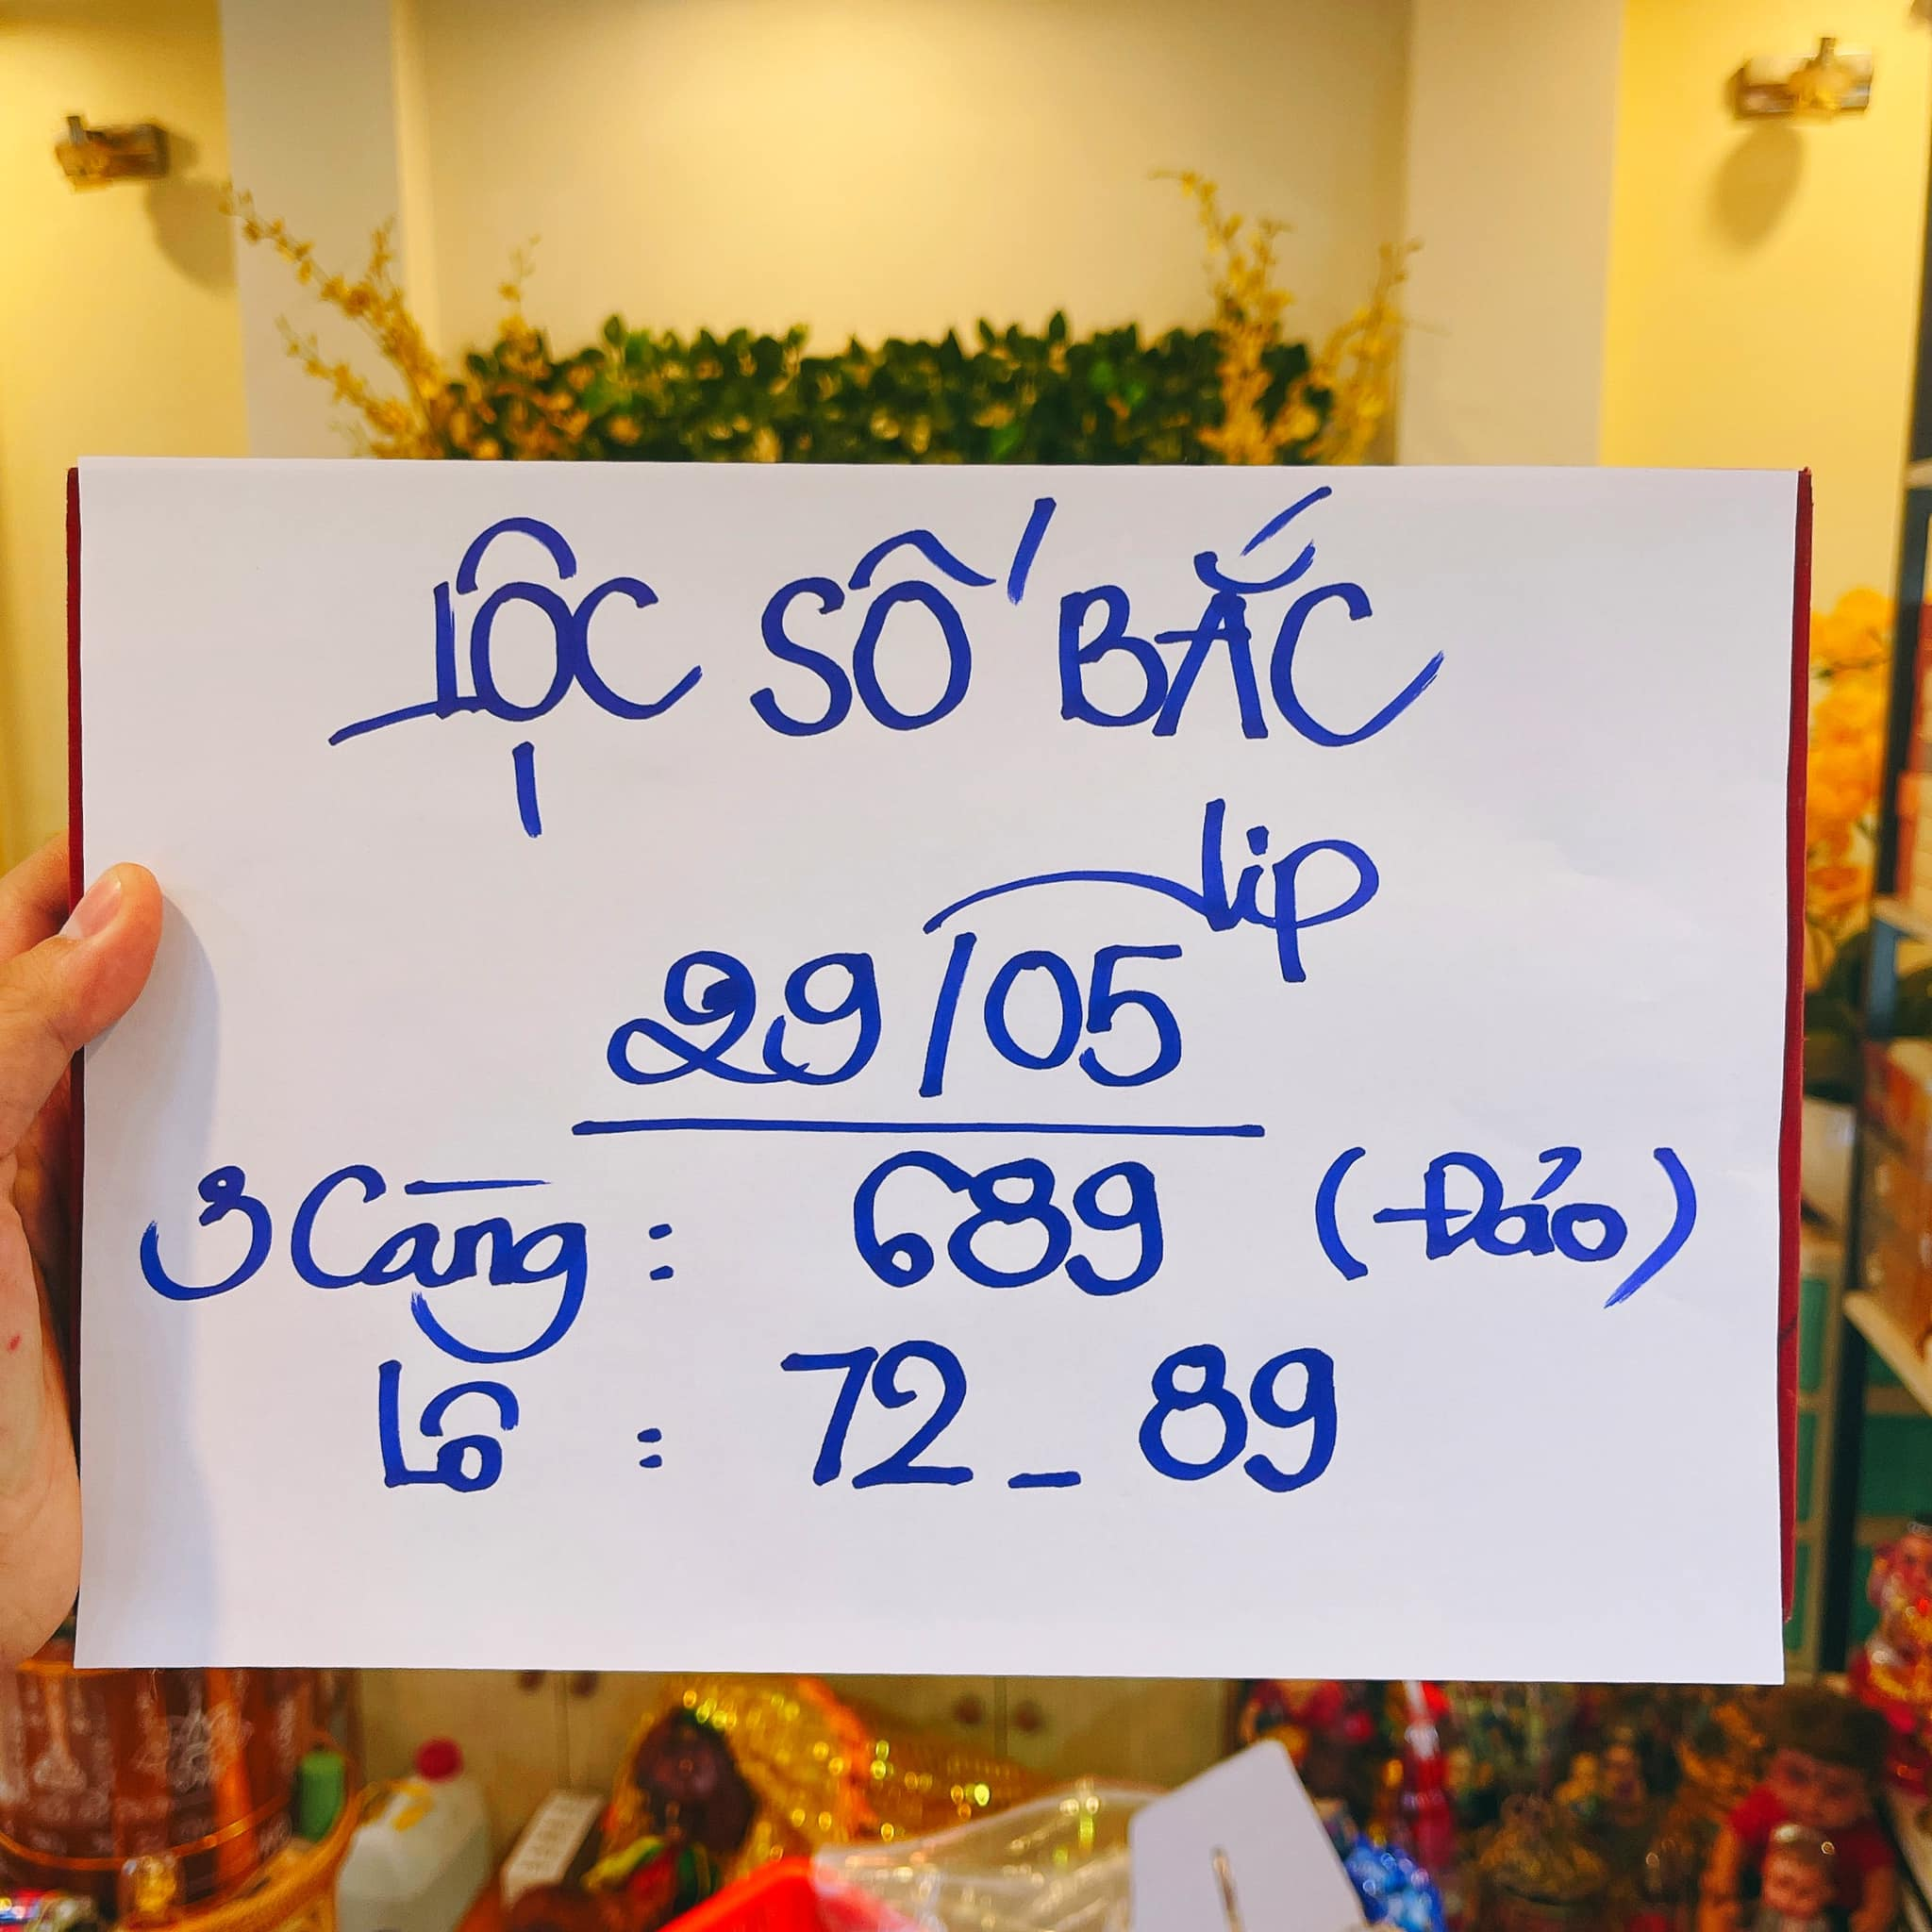 LỘC SỐ BẮC
lip
29/05
3 Càng : 689 (Đảo)
Lô : 72 _ 89